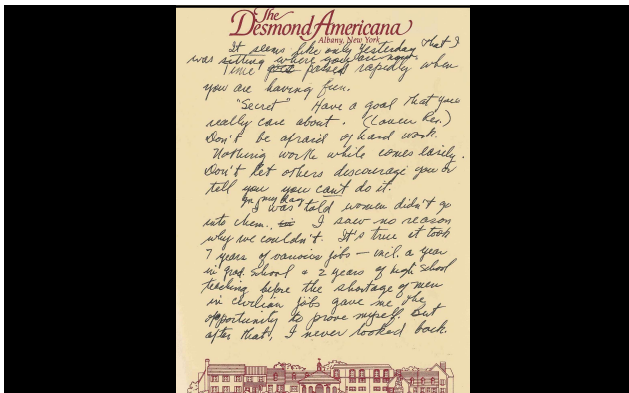 The
Desmond Americana
Albany, New York
It seems like only yesterday that I
was sitting where you are now.
Time passed rapidly when
you are having fun.
"Secret" Have a goal that you
really care about. (Cancer Res.)
Don't be afraid of hard work.
Nothing worth while comes easily.
Don't let others discourage you or
tell you you can't do it.
In my day
I was told women didn't go
into chem. I saw no reason
why we couldn't. It's true it took
7 years of various jobs – incl. a year
in grad. school & 2 years of high school
teaching before the shortage of men
in civilian jobs gave me the
opportunity to prove myself. But
after that, I never looked back.